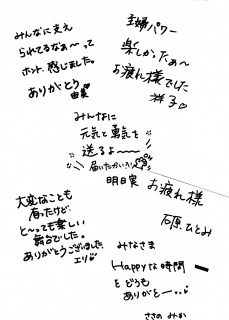 みんなに支え
られてるなぁ〜って
ホント、感じました。
ありがとう
由実
主婦パワー
楽しかったぁ〜
お疲れ様でした
祥子
みんなに
元気と勇気を
送るよ〜〜
届いたかい?
明日実
お疲れ様
石原ひとみ
大変なことも
有ったけど
と〜っても楽しい
舞台でした。
ありがとうございました
エリ
みなさま
Happyな時間
をどうも
ありがとー...
ささの みか